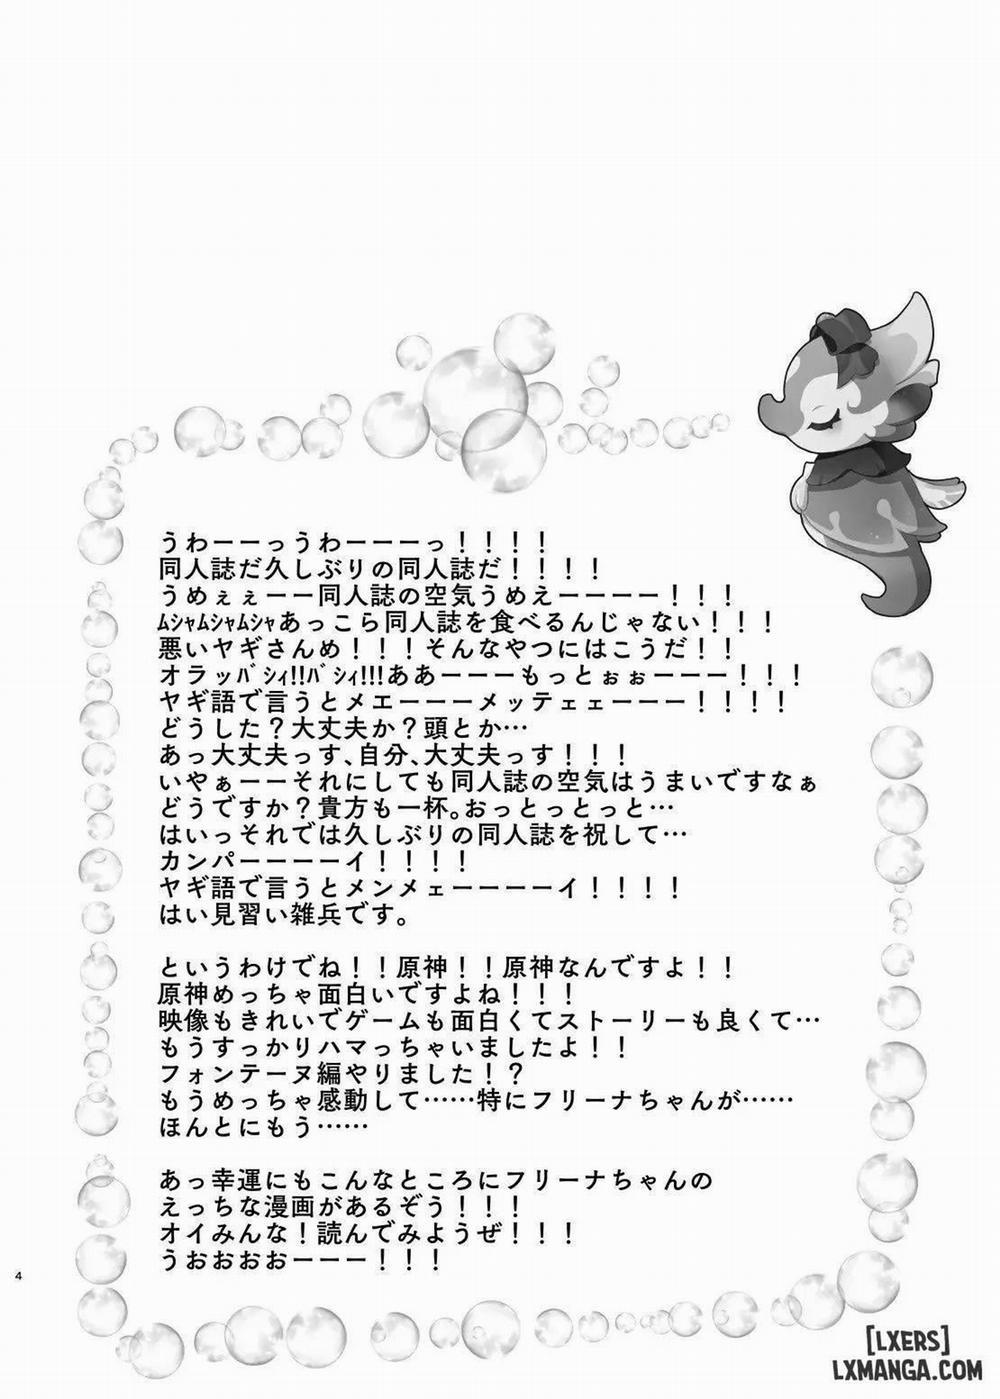 うわーーっうわーーーっ！！！！
同人誌だ久しぶりの同人誌だ！！！！
うめぇぇーー同人誌の空気うめえーーーー！！！
ﾑｼｬﾑｼｬﾑｼｬあっこら同人誌を食べるんじゃない！！！
悪いヤギさんめ！！！そんなやつにはこうだ！！
オラッﾊﾞｼｨ!!ﾊﾞｼｨ!!!ああーーーもっとぉぉーーー！！！
ヤギ語で言うとメエーーーメッテェェーーー！！！！
どうした？大丈夫か？頭とか…
あっ大丈夫っす、自分、大丈夫っす！！！
いやぁーーそれにしても同人誌の空気はうまいですなぁ
どうですか？貴方も一杯。おっとっとっと…
はいっそれでは久しぶりの同人誌を祝して…
カンパーーーーイ！！！！
ヤギ語で言うとメンメェーーーーイ！！！！
はい見習い雑兵です。
というわけでね！！原神！！原神なんですよ！！
原神めっちゃ面白いですよね！！！
映像もきれいでゲームも面白くてストーリーも良くて…
もうすっかりハマっちゃいましたよ！！
フォンテーヌ編やりました！？
もうめっちゃ感動して……特にフリーナちゃんが……
ほんとにもう……
あっ幸運にもこんなところにフリーナちゃんの
えっちな漫画があるぞう！！！
オイみんな！読んでみようぜ！！！
うおおおおーーー！！！
4
[LXERS]
LXMANGA.COM